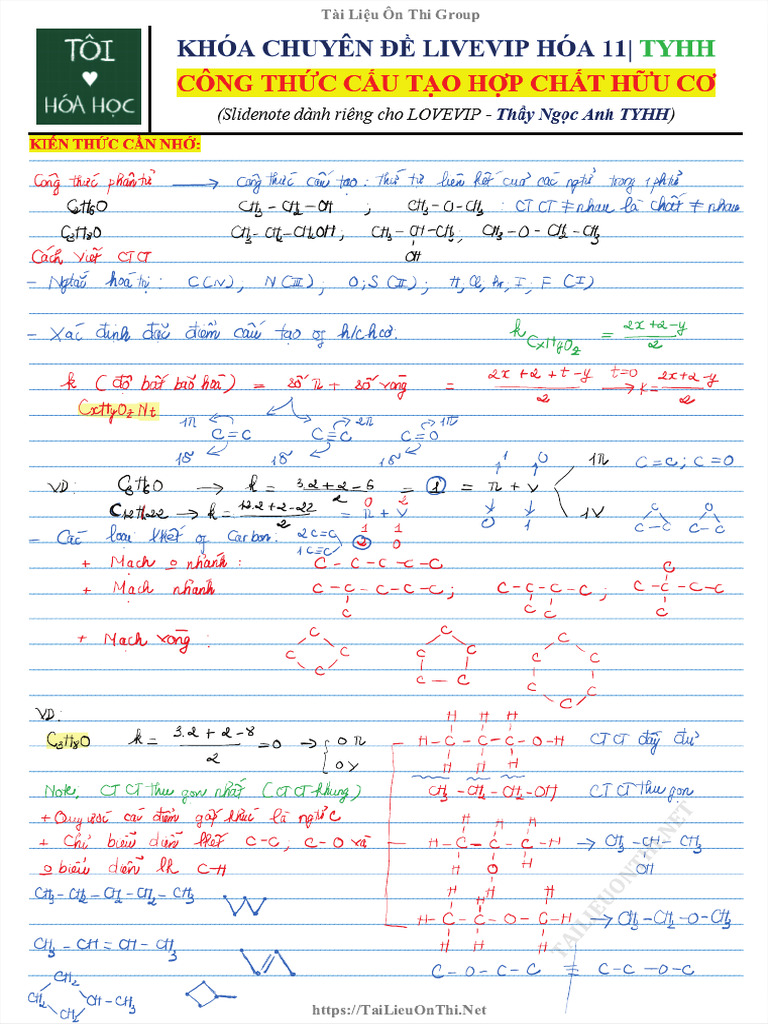 Tài Liệu Ôn Thi Group
TÔI
♥
HÓA HỌC
KHÓA CHUYÊN ĐỀ LIVEVIP HÓA 11| TYHH
CÔNG THỨC CẤU TẠO HỢP CHẤT HỮU CƠ
(Slidenote dành riêng cho LOVEVIP - Thầy Ngọc Anh TYHH)
KIẾN THỨC CẦN NHỚ:
Công thức phân tử → Công thức cấu tạo: thứ tự liên kết của các ngtử trong 1 phtử
C2H6O CH3-CH2-OH ; CH3-O-CH3 : CTCT ≠ nhau là chất ≠ nhau
C3H8O CH3-CH2-CH2OH, CH3-CH-CH3, CH3-O-CH2-CH3
OH
Cách viết CTCT
- Ngtắc hoá trị: C(IV), N(III), O;S(II); H,Cl,Br,I,F(I)
- Xác định đặc điểm cấu tạo of h/c h cơ: k CxHyOz = 2x+2-y / 2
k (độ bất bão hoà) = số π + số vòng = 2x+2+t-y / 2 t=0 → k = 2x+2-y / 2
CxHyOzNt
1π 2π 1π
C=C C≡C C=O
1δ 1δ 1δ
VD: C3H6O → k = 3.2+2-6 / 2 = 1 = π + v 1π C=C; C=O
C12H22 → k = 12.2+2-22 / 2 = π + v 1v
- Các loại lkết of Carbon: 2C=C
1C≡C
+ Mạch o nhánh: C-C-C-C-C
+ Mạch nhánh C-C-C-C-C; C-C-C-C; C-C-C-C
+ Mạch vòng:
VD:
C3H8O k = 3.2+2-8 / 2 = 0 → 0π 0v H-C-C-C-O-H CTCT đầy đủ
Note, CTCT thu gọn nhất (CTCT khung) CH3-CH2-CH2-OH CTCT thu gọn
+ Quy ước các điểm gấp khúc là ngtử C
+ Chỉ biểu diễn lkết C-C, C-O và H-C-C-C-H → CH3-CH-CH3
OH
o biểu diễn lk C-H
CH3-CH2-CH2-CH2-CH3
H-C-C-O-C-H → CH3-CH2-O-CH3
CH3-CH=CH-CH3
C-O-C-C ≡ C-C-O-C
CH2
CH2 CH-CH3
CH2
TAILIEUONTHI.NET
https://TaiLieuOnThi.Net